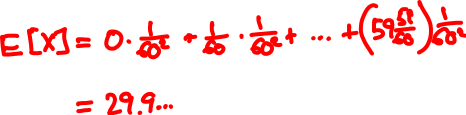 E[X] = 0 · 1/60² + 1/60 · 1/60² + ... + (59 59/60) 1/60²
= 29.9...